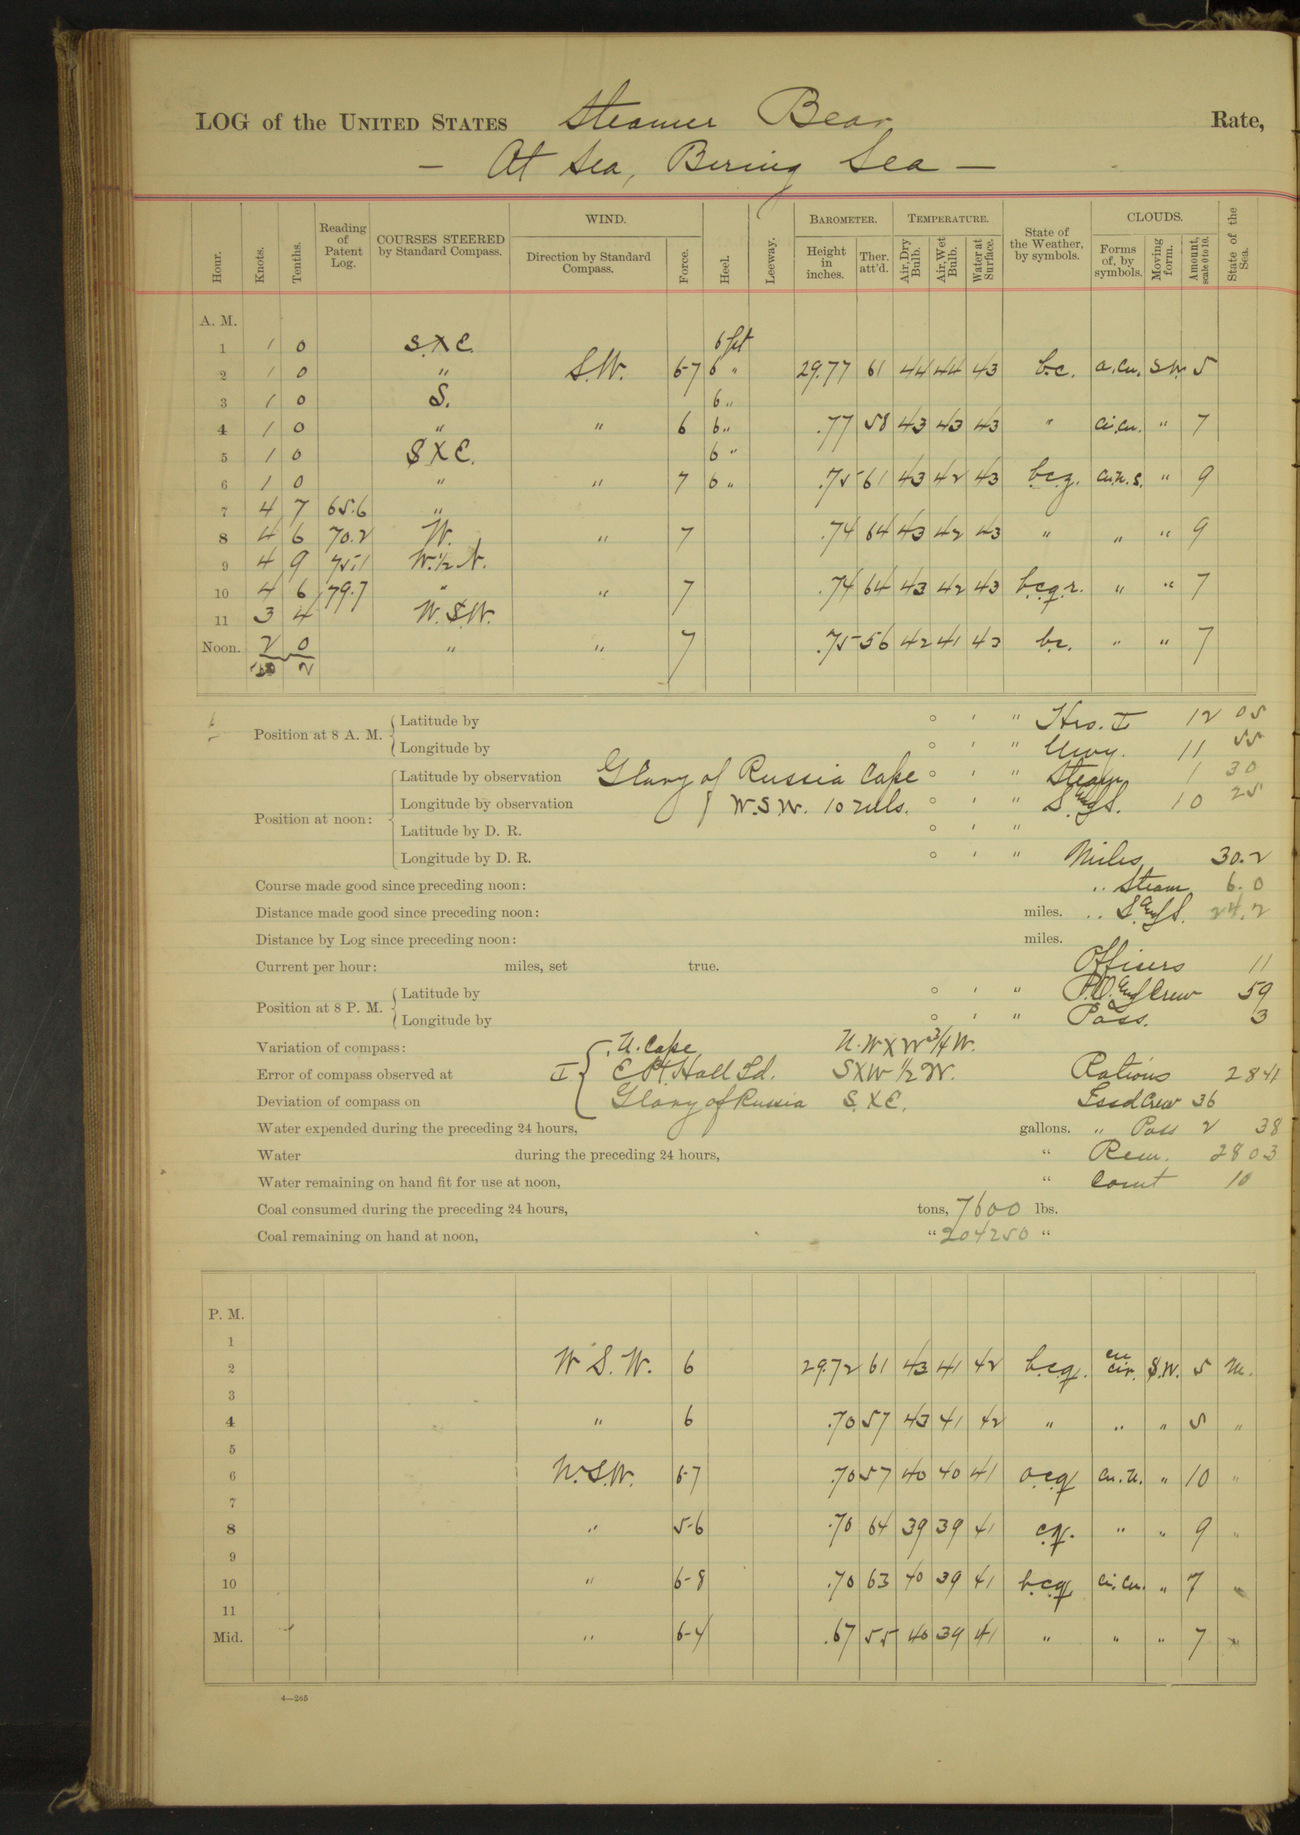 LOG of the UNITED STATES Steamer Bear Rate,
— At Sea, Bering Sea —
Hour. Knots. Tenths. Reading of Patent Log. COURSES STEERED by Standard Compass. WIND. Direction by Standard Compass. Force. Heel. Leeway. BAROMETER. Height in inches. Ther. att'd. TEMPERATURE. Air, Dry Bulb. Air, Wet Bulb. Water at Surface. State of the Weather, by symbols. CLOUDS. Forms of, by symbols. Moving form. Amount, scale 0 to 10. State of the Sea.
A. M.
1 1 0 S.XE. 6 ft
2 1 0 " S.W. 6-7 6 " 29.77 61 44 44 43 b.c. a.cu. S W. 5
3 1 0 S. 6 "
4 1 0 " " 6 6 " .77 58 43 43 43 " ci.cu. " 7
5 1 0 SXE. 6 "
6 1 0 " " 7 6 " .75 61 43 42 43 b.c.q. cu.n.s. " 9
7 4 7 65.6 "
8 4 6 70.2 W. " 7 .74 64 43 42 43 " " " 9
9 4 9 75.1 W.½N.
10 4 6 79.7 " " 7 .74 64 43 42 43 b.c.q.r. " " 7
11 3 4 W.S.W.
Noon. 2 0 " " 7 .75 56 42 41 43 b.c. " " 7
30 2
Position at 8 A. M. Latitude by ° ' " Hrs. I 12 05
Longitude by ° ' " Uwy. 11 55
Position at noon: Latitude by observation Glory of Russia Cape ° ' " Steam 1 30
Longitude by observation W.S.W. 10 mls. ° ' " S.&S. 10 25
Latitude by D. R. ° ' "
Longitude by D. R. ° ' " Miles 30.2
Course made good since preceding noon: " Steam 6.0
Distance made good since preceding noon: miles. " S.&S. 24.2
Distance by Log since preceding noon: miles.
Current per hour: miles, set true. Officers 11
Position at 8 P. M. Latitude by ° ' " P.O. and Crew 59
Longitude by ° ' " Pass. 3
Variation of compass: N. Cape N.WXW¾W.
Error of compass observed at I E Pt. Hall Id. SXW ½ W. Rations 2841
Deviation of compass on Glory of Russia S.XE. Issd Crew 36
Water expended during the preceding 24 hours, gallons. " Pass 2 38
Water during the preceding 24 hours, " Rem. 2803
Water remaining on hand fit for use at noon, " Comt 10
Coal consumed during the preceding 24 hours, tons, 7600 lbs.
Coal remaining on hand at noon, " 204250 "
P. M.
1
2 W S. W. 6 29.72 61 43 41 42 b.c.q. cu cir. S.W. 5 M.
3
4 " 6 .70 57 43 41 42 " " " 5 "
5
6 W.S.W. 6-7 .70 57 40 40 41 o.c.q. cu.n. " 10 "
7
8 " 5-6 .70 64 39 39 41 c.q. " " 9 "
9
10 " 6-8 .70 63 40 39 41 b.c.q. ci.cu. " 7 "
11
Mid. " 6-7 .67 55 40 39 41 " " " 7 "
4—265